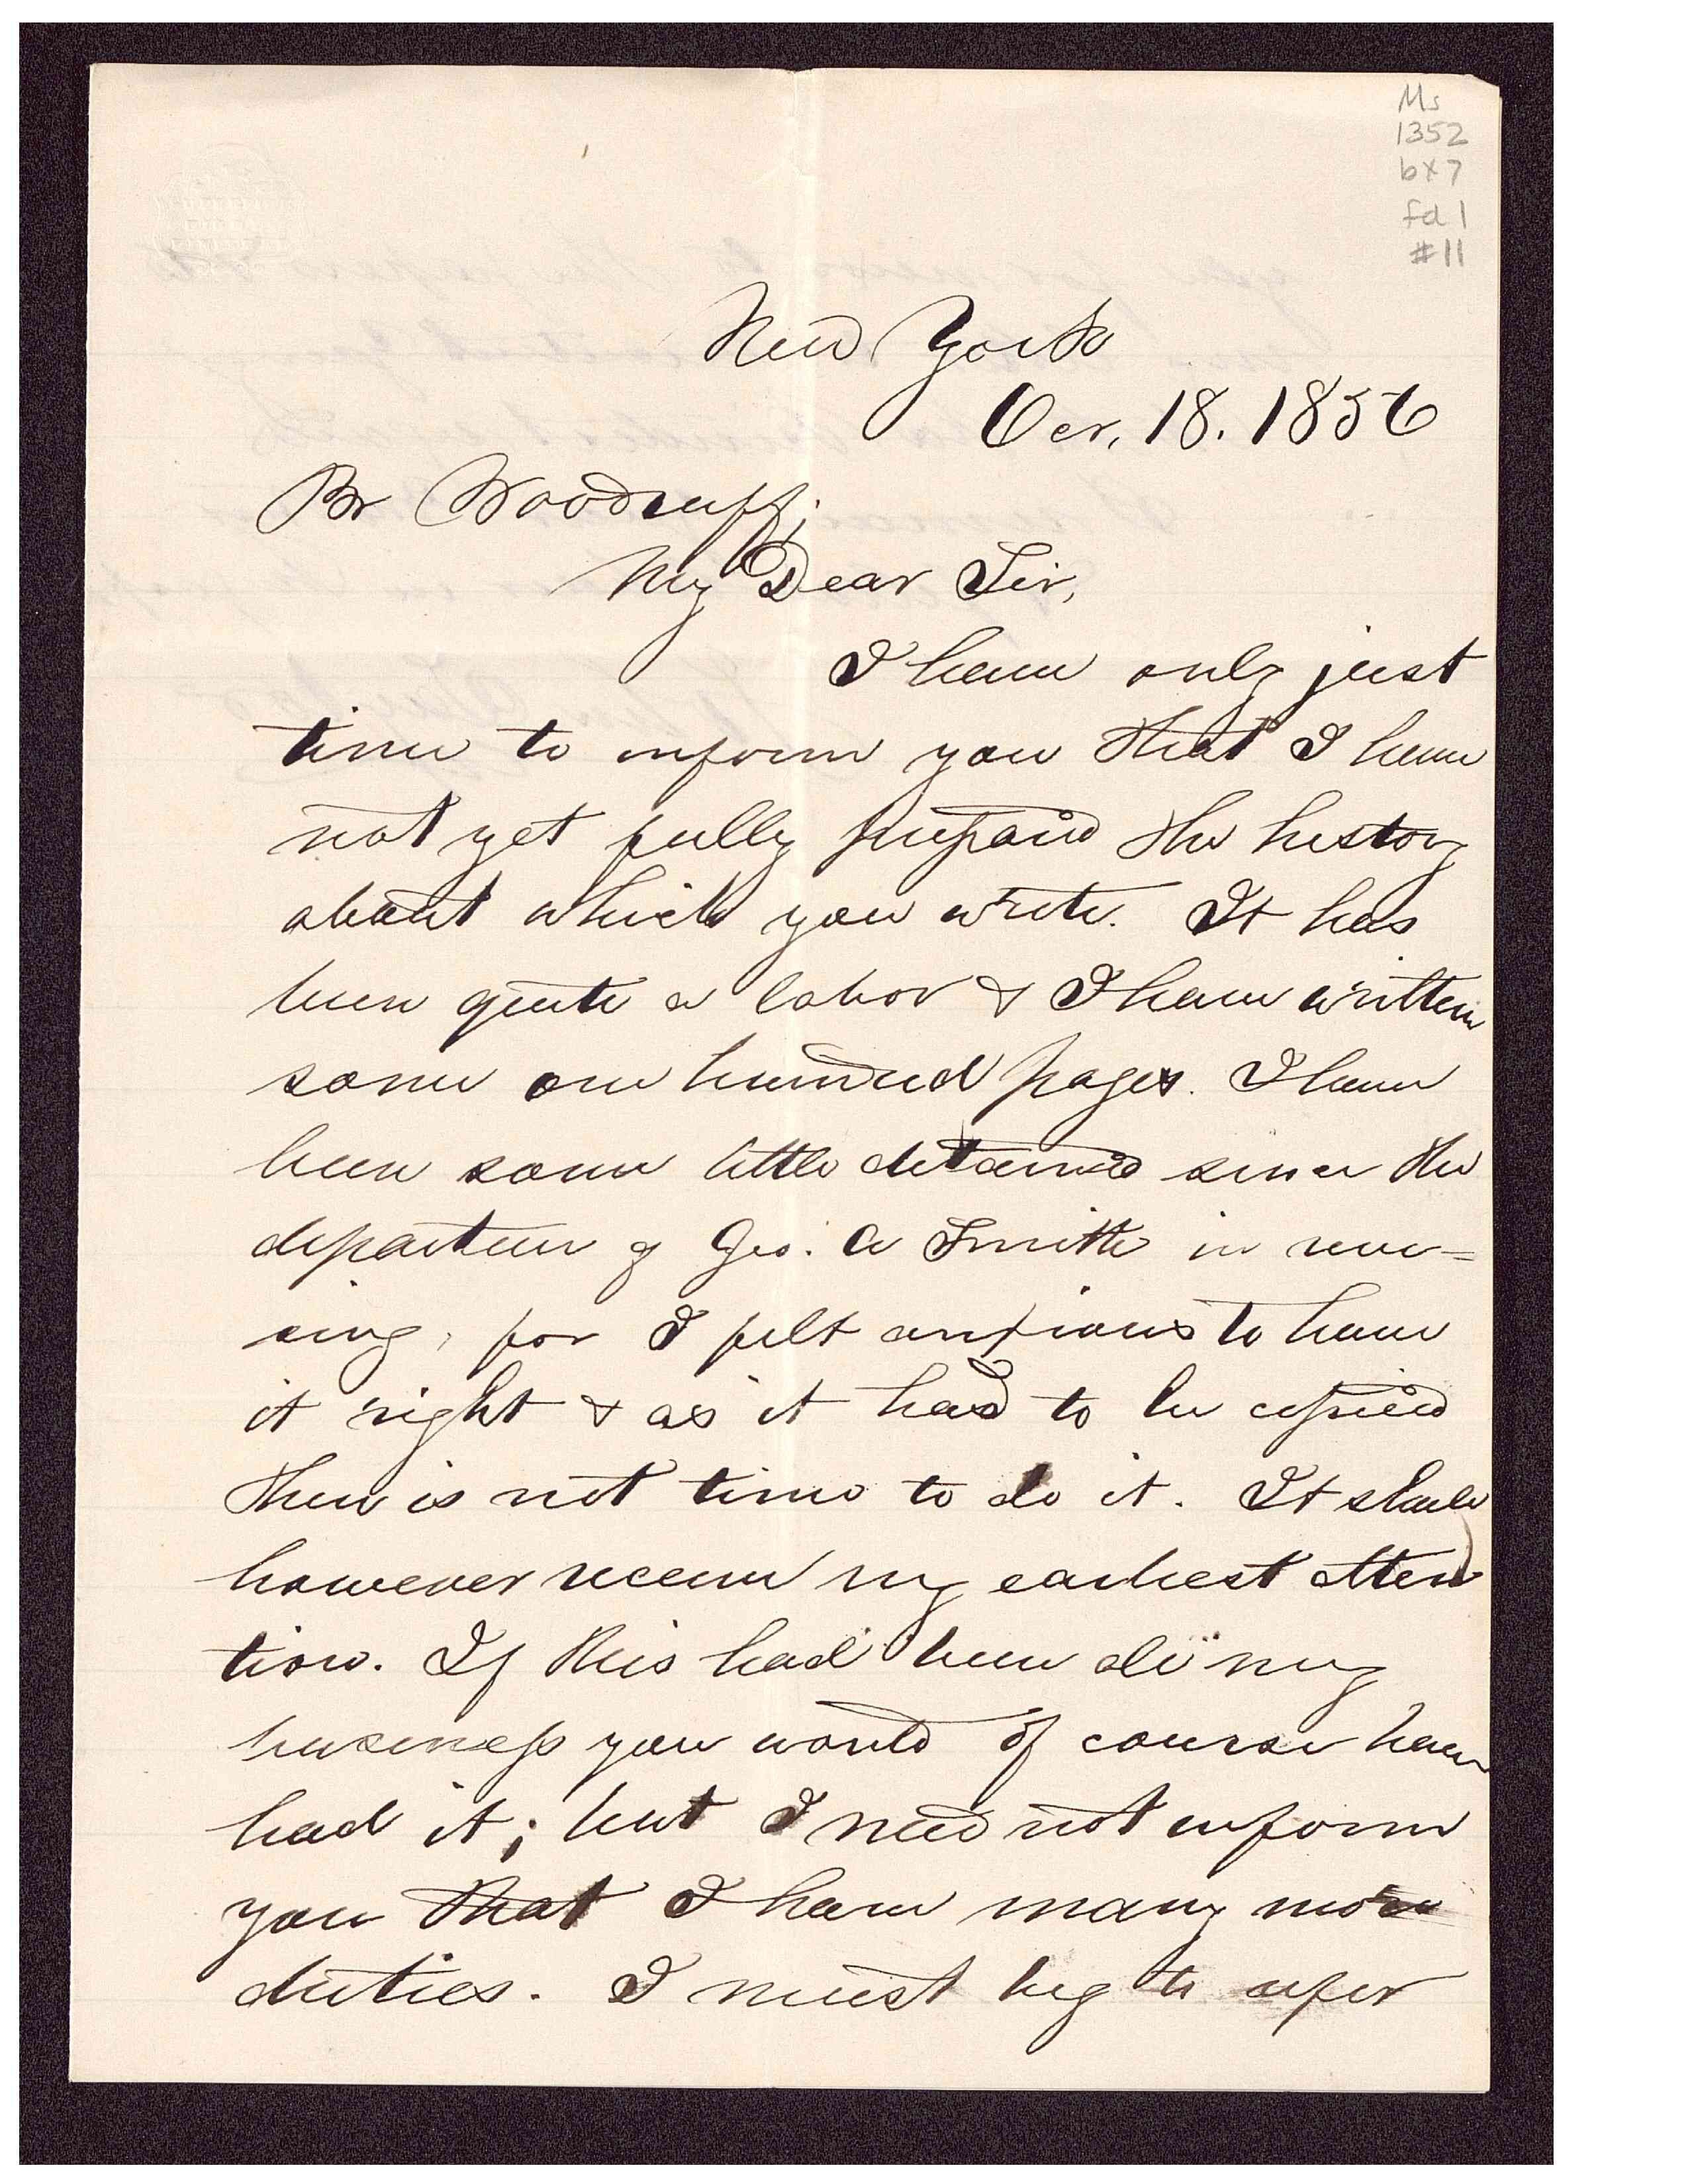 Ms
1352
bx 7
fd 1
#11
New York
Oct. 18. 1856
Br Woodruff;
My Dear Sir,
I have only just
time to inform you that I have
not yet fully prepared the history
about which you write. It has
been quite a labor & I have written
some one hundred pages. I have
been some little detained since the
departure of Geo. A Smith in revi=
sing, for I felt anxious to have
it right & as it had to be copied
there is not time to do it. It shall
however receive my earliest atten
tion. If this had been all my
business you would of course have
had it; but I need not inform
you that I have many more
duties. I must beg to refer